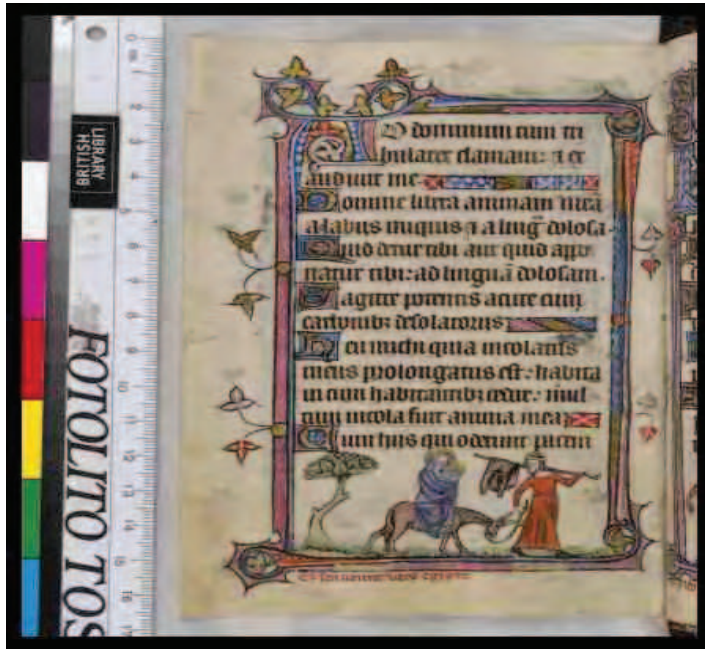 BRITISH
LIBRARY
FOTOLITO TOS
0 1 2 3 4 5 6 7 8 9 10 11 12 13 14 15 16 17
AD dominum cum tri
bularer clamaui: ⁊ ex
audiuit me
Domine libera animam mea
a labiis iniquis ⁊ a ling̃ dolosa
Quid detur tibi aut quid appo
natur tibi: ad linguã dolosam.
Sagitte potentis acute cum
carbonibꝫ desolatoriis
Heu michi quia incolatus
meus prolongatus est: habita
ui cum habitantibꝫ cedar: mul
tum incola fuit anima mea
Cum hiis qui oderunt pacem